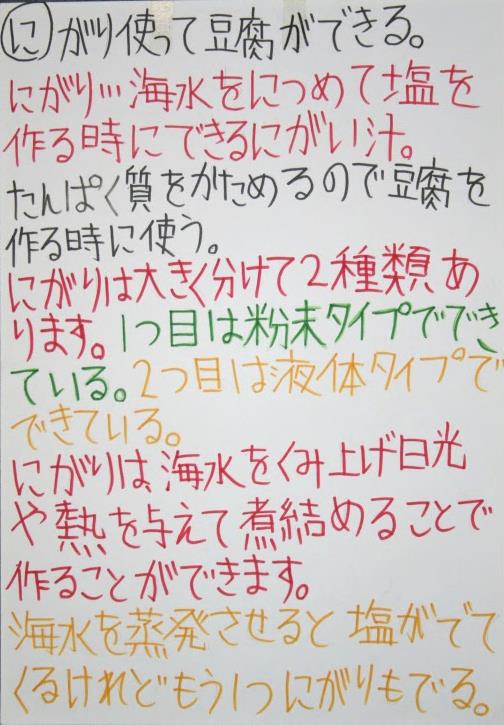 にがり使って豆腐ができる。
にがり…海水をにつめて塩を
作る時にできるにがい汁。
たんぱく質をかためるので豆腐を
作る時に使う。
にがりは大きく分けて2種類あ
ります。1つ目は粉末タイプででき
ている。2つ目は液体タイプで
できている。
にがりは、海水をくみ上げ日光
や熱を与えて煮結めることで
作ることができます。
海水を蒸発させると塩がでて
くるけれどもう1つにがりもでる。